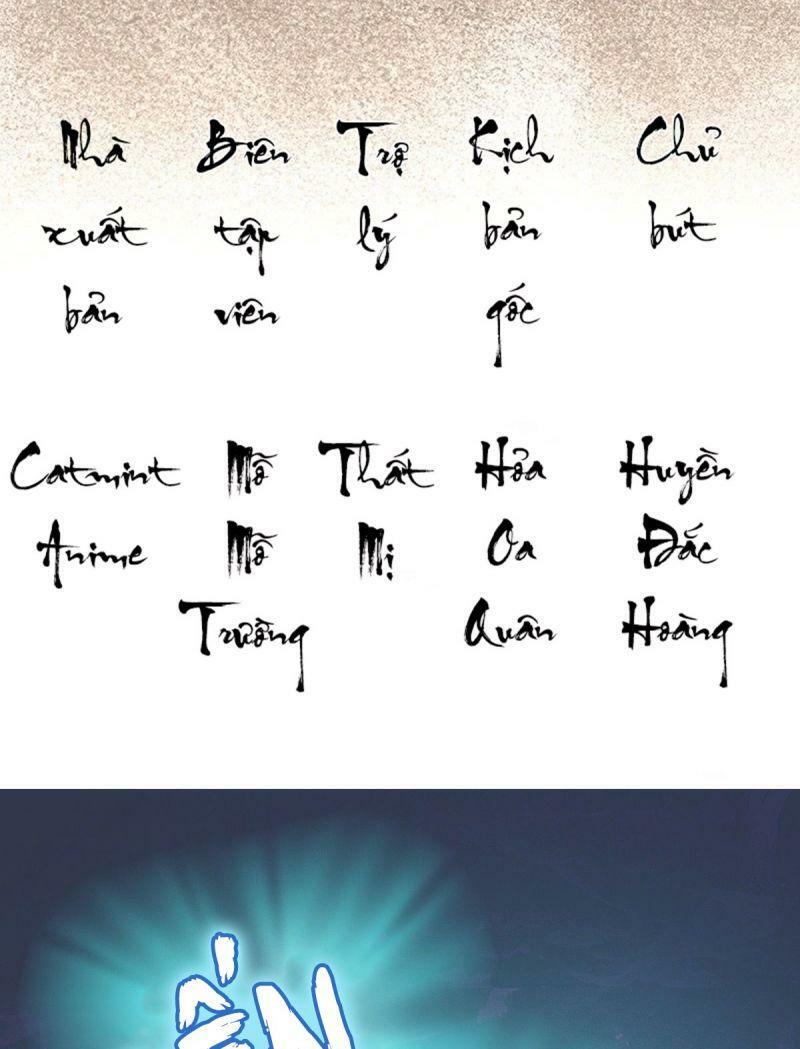 Nhà Biên Trợ Kịch Chủ
xuất tập lý bản bút
bản viên gốc
Catmint Mỗ Thất Hỏa Huyền
Anime Mỗ Mị Oa Đắc
Trường Quân Hoàng